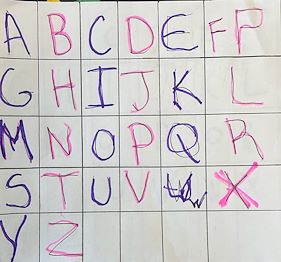 A B C D E F P
G H I J K L
M N O P Q R
S T U V W X
Y Z